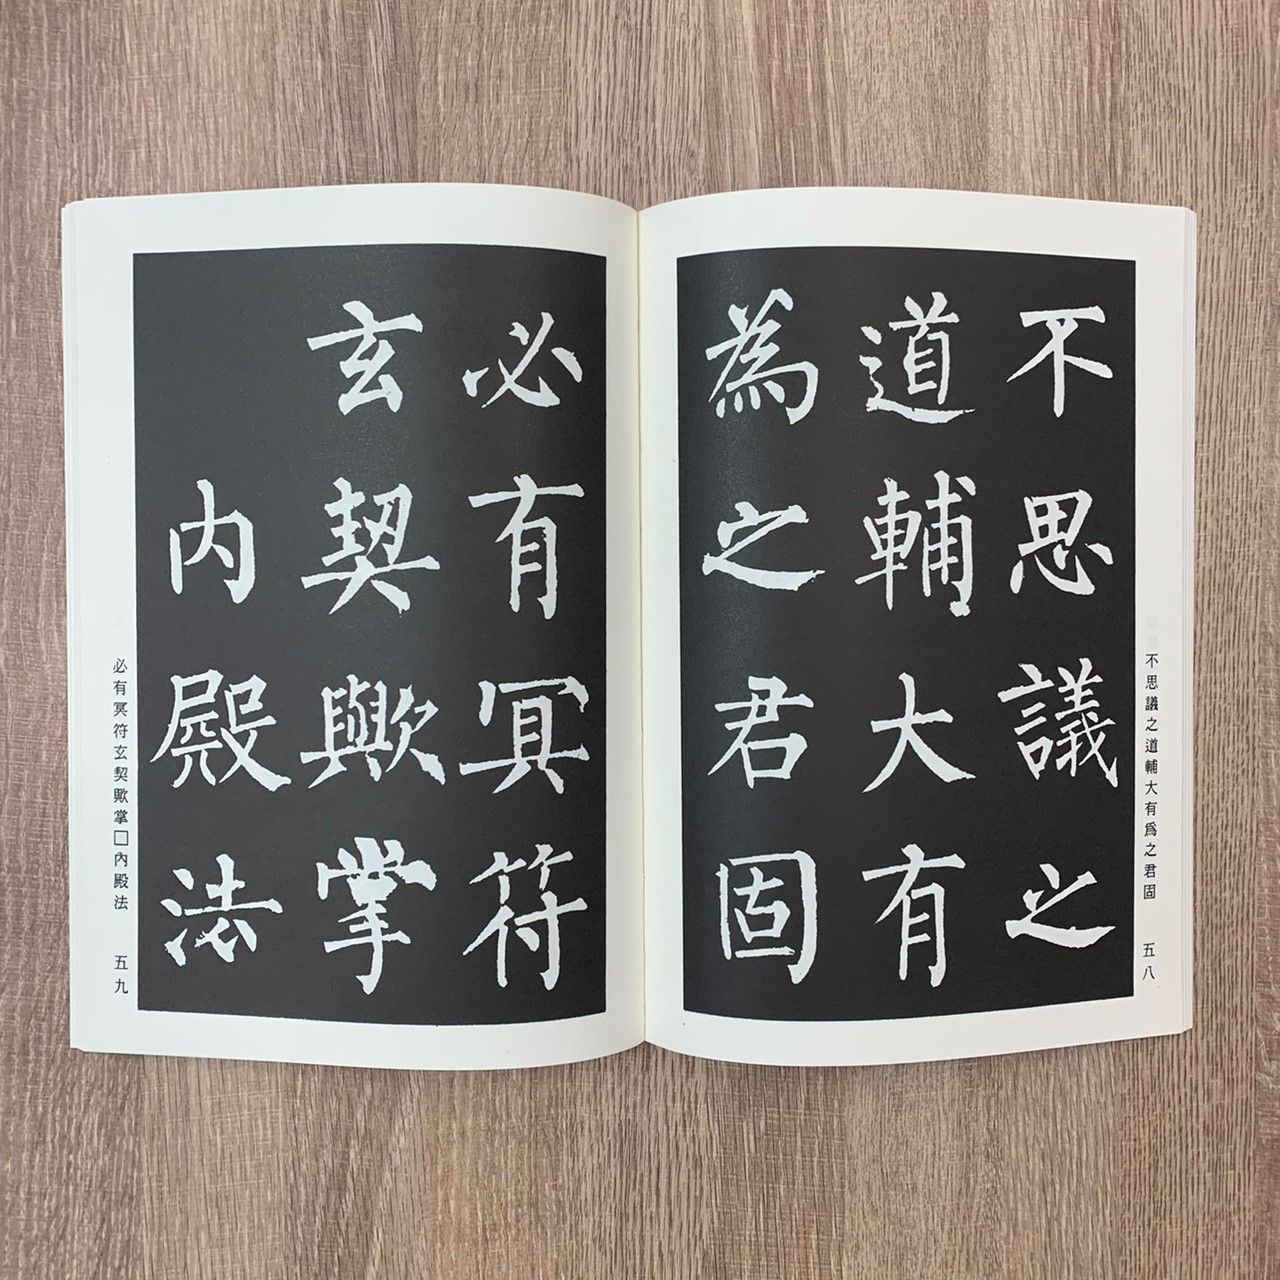 不思議之
道輔大有
為之君固
不思議之道輔大有爲之君固 五八
必有冥符
玄契歟掌
内殿法
必有冥符玄契歟掌□內殿法 五九